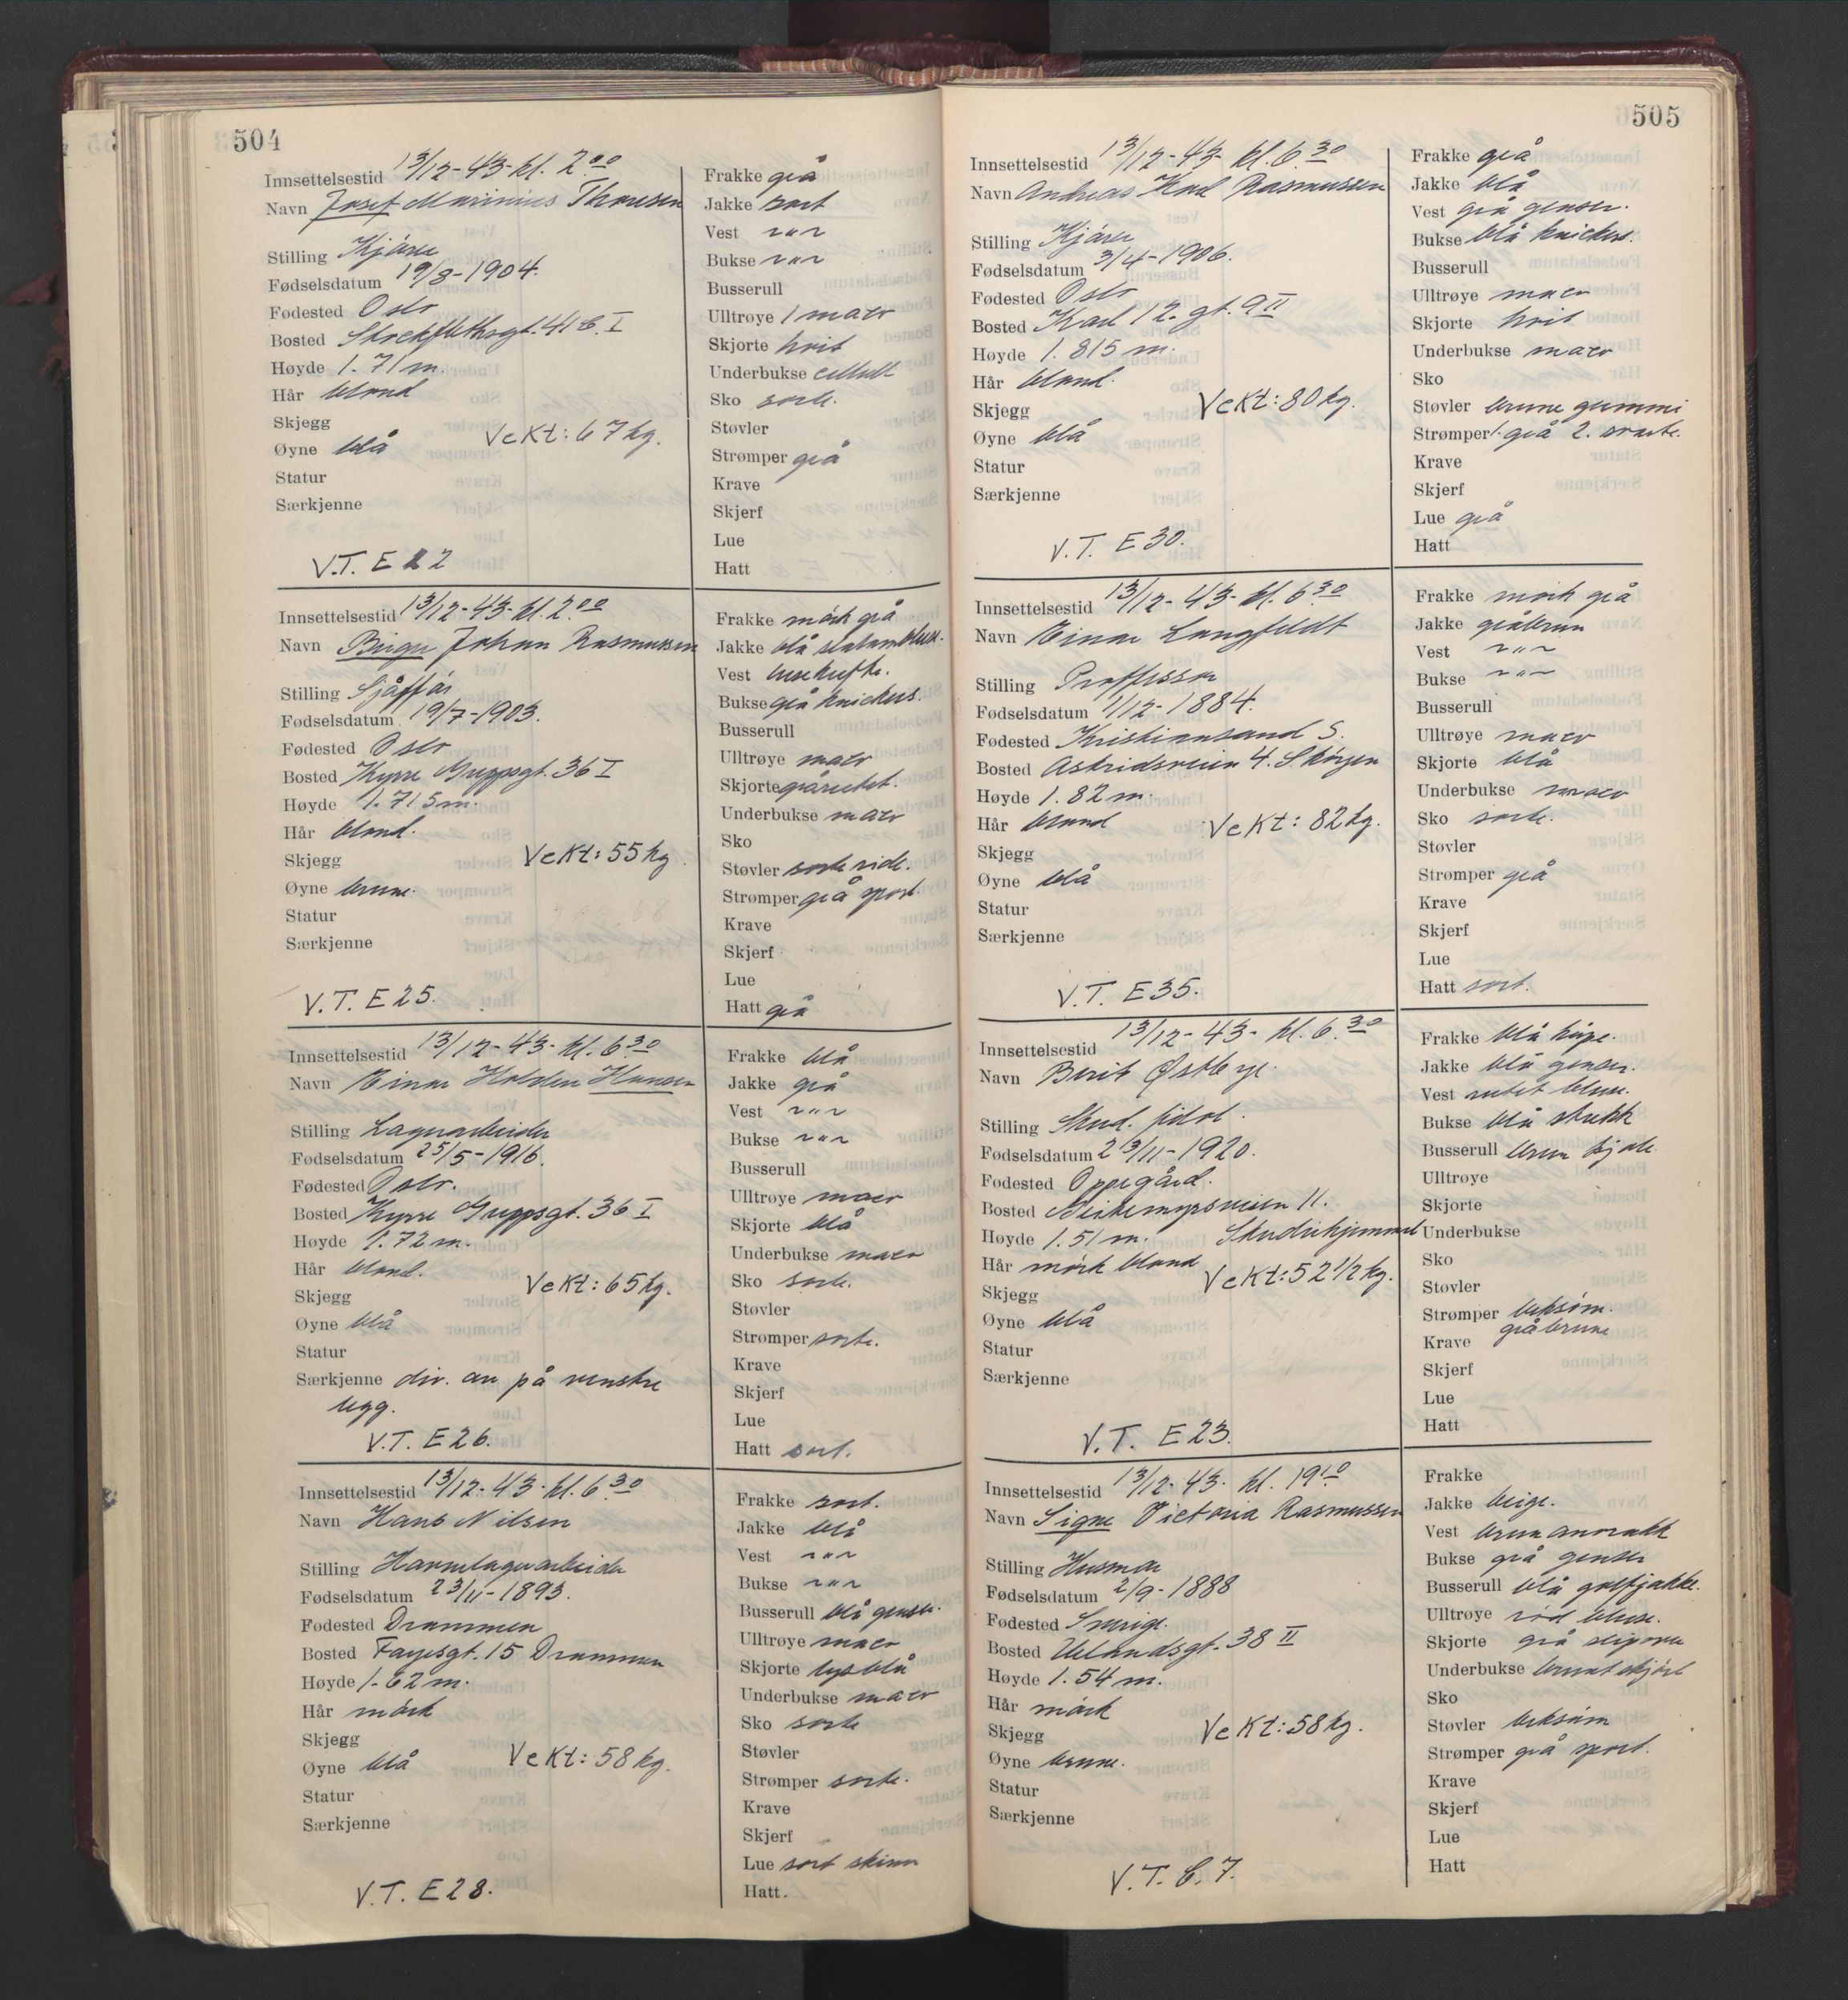 504
Innsettelsestid 13/12-43- kl. 2.00
Navn Josef Marinius Thoresen
Stilling Kjører
Fødselsdatum 19/8-1904.
Fødested Oslo
Bosted Stockflethsgt. 41 B. I
Høyde 1.71 m.
Hår blond
Skjegg
Øyne blå Vekt: 67 kg.
Statur
Særkjenne
V.T. E 22
Frakke grå
Jakke sort
Vest —"—
Bukse —"—
Busserull
Ulltrøye 1 maco
Skjorte hvit
Underbukse cellull
Sko sorte.
Støvler
Strømper grå
Krave
Skjerf
Lue
Hatt
Innsettelsestid 13/12-43- kl. 2.00
Navn Birger Johan Rasmussen
Stilling Sjåffør
Fødselsdatum 19/7-1903.
Fødested Oslo
Bosted Kyrre Greppsgt. 36 I
Høyde 1.715 m.
Hår blond.
Skjegg Vekt: 55 kg.
Øyne brune.
Statur
Særkjenne
V.T. E 25.
Frakke mörk grå
Jakke blå slalambluse.
Vest lusekufte.
Bukse grå knickers.
Busserull
Ulltrøye maco
Skjorte gårutet.
Underbukse maco
Sko
Støvler sorte ride.
Strømper grå sport
Krave
Skjerf
Lue
Hatt grå
Innsettelsestid 13/12-43- kl. 6.30
Navn Einar Holden Hansen
Stilling Lagerarbeider
Fødselsdatum 25/5-1916.
Fødested Oslo.
Bosted Kyrre Greppsgt. 36 I
Høyde 1.72 m.
Hår blond.
Skjegg Vekt: 65 kg.
Øyne blå
Statur
Særkjenne div. arr på venstre
legg.
V.T. E 26.
Frakke blå
Jakke grå
Vest —"—
Bukse —"—
Busserull
Ulltrøye maco
Skjorte blå
Underbukse maco
Sko sorte.
Støvler
Strømper sorte.
Krave
Skjerf
Lue
Hatt sort.
Innsettelsestid 13/12-43- kl. 6.30
Navn Hans Nilsen
Stilling Havnelagerarbeider
Fødselsdatum 23/11-1893.
Fødested Drammen
Bosted Fayesgt. 15 Drammen
Høyde 1.62 m.
Hår mörk
Skjegg
Øyne blå Vekt: 58 kg.
Statur
Særkjenne
V.T. E 28.
Frakke sort.
Jakke blå
Vest —"—
Bukse —"—
Busserull blå genser.
Ulltrøye maco
Skjorte lysblå
Underbukse maco
Sko sorte
Støvler
Strømper sorte.
Krave
Skjerf
Lue sort skinn
Hatt.
505
Innsettelsestid 13/12-43- kl. 6.30
Navn Andreas Karl Rasmussen
Stilling Kjører
Fødselsdatum 3/4-1906.
Fødested Oslo
Bosted Karl 12. gt. 9 II
Høyde 1.815 m.
Hår blond.
Skjegg Vekt: 80 kg.
Øyne blå
Statur
Særkjenne
V.T. E 30.
Frakke grå
Jakke blå
Vest grå genser.
Bukse blå knickers.
Busserull
Ulltrøye maco
Skjorte hvit
Underbukse maco
Sko
Støvler brune gummi
Strømper 1. grå 2. svarte.
Krave
Skjerf
Lue grå
Hatt
Innsettelsestid 13/12-43- kl. 6.30
Navn Einar Langfeldt
Stilling Proffessor
Fødselsdatum 1/12-1884.
Fødested Kristiansand S.
Bosted Astridsveien 4. Skøyen
Høyde 1.82 m.
Hår blond Vekt: 82 kg.
Skjegg
Øyne blå
Statur
Særkjenne
V.T. E 35.
Frakke mörk grå
Jakke gråbrun
Vest —"—
Bukse —"—
Busserull
Ulltrøye maco
Skjorte blå
Underbukse maco
Sko sorte.
Støvler
Strømper grå
Krave
Skjerf
Lue
Hatt sort.
Innsettelsestid 13/12-43- kl. 6.30
Navn Berit Østbye.
Stilling Stud. filol.
Fødselsdatum 23/11-1920.
Fødested Oppegård.
Bosted Heibemyrsveien 11.
Høyde 1.51 m. Studinehjemmet
Hår mörk blond Vekt: 52 1/2 kg.
Skjegg
Øyne blå
Statur
Særkjenne
V.T. E 23.
Frakke blå kåpe.
Jakke blå genser.
Vest rutet bluse.
Bukse blå strekk
Busserull brun kjole.
Ulltrøye
Skjorte
Underbukse
Sko
Støvler
Strømper beksöm.
Krave gråbrune
Skjerf
Lue
Hatt
Innsettelsestid 13/12-43. kl. 19.10
Navn Signe Victoria Rasmussen
Stilling Husmor
Fødselsdatum 2/9-1888
Fødested Sverige.
Bosted Uelandsgt. 38 II
Høyde 1.54 m.
Hår mörk
Skjegg Vekt: 58 kg.
Øyne brune.
Statur
Særkjenne
V.T. C. 7.
Frakke
Jakke beige.
Vest brun anorakk
Bukse grå genser
Busserull blå golfjakke.
Ulltrøye rød bluse.
Skjorte grå slipover
Underbukse brunt skjört
Sko
Støvler beksöm
Strømper grå sport.
Krave
Skjerf
Lue
Hatt